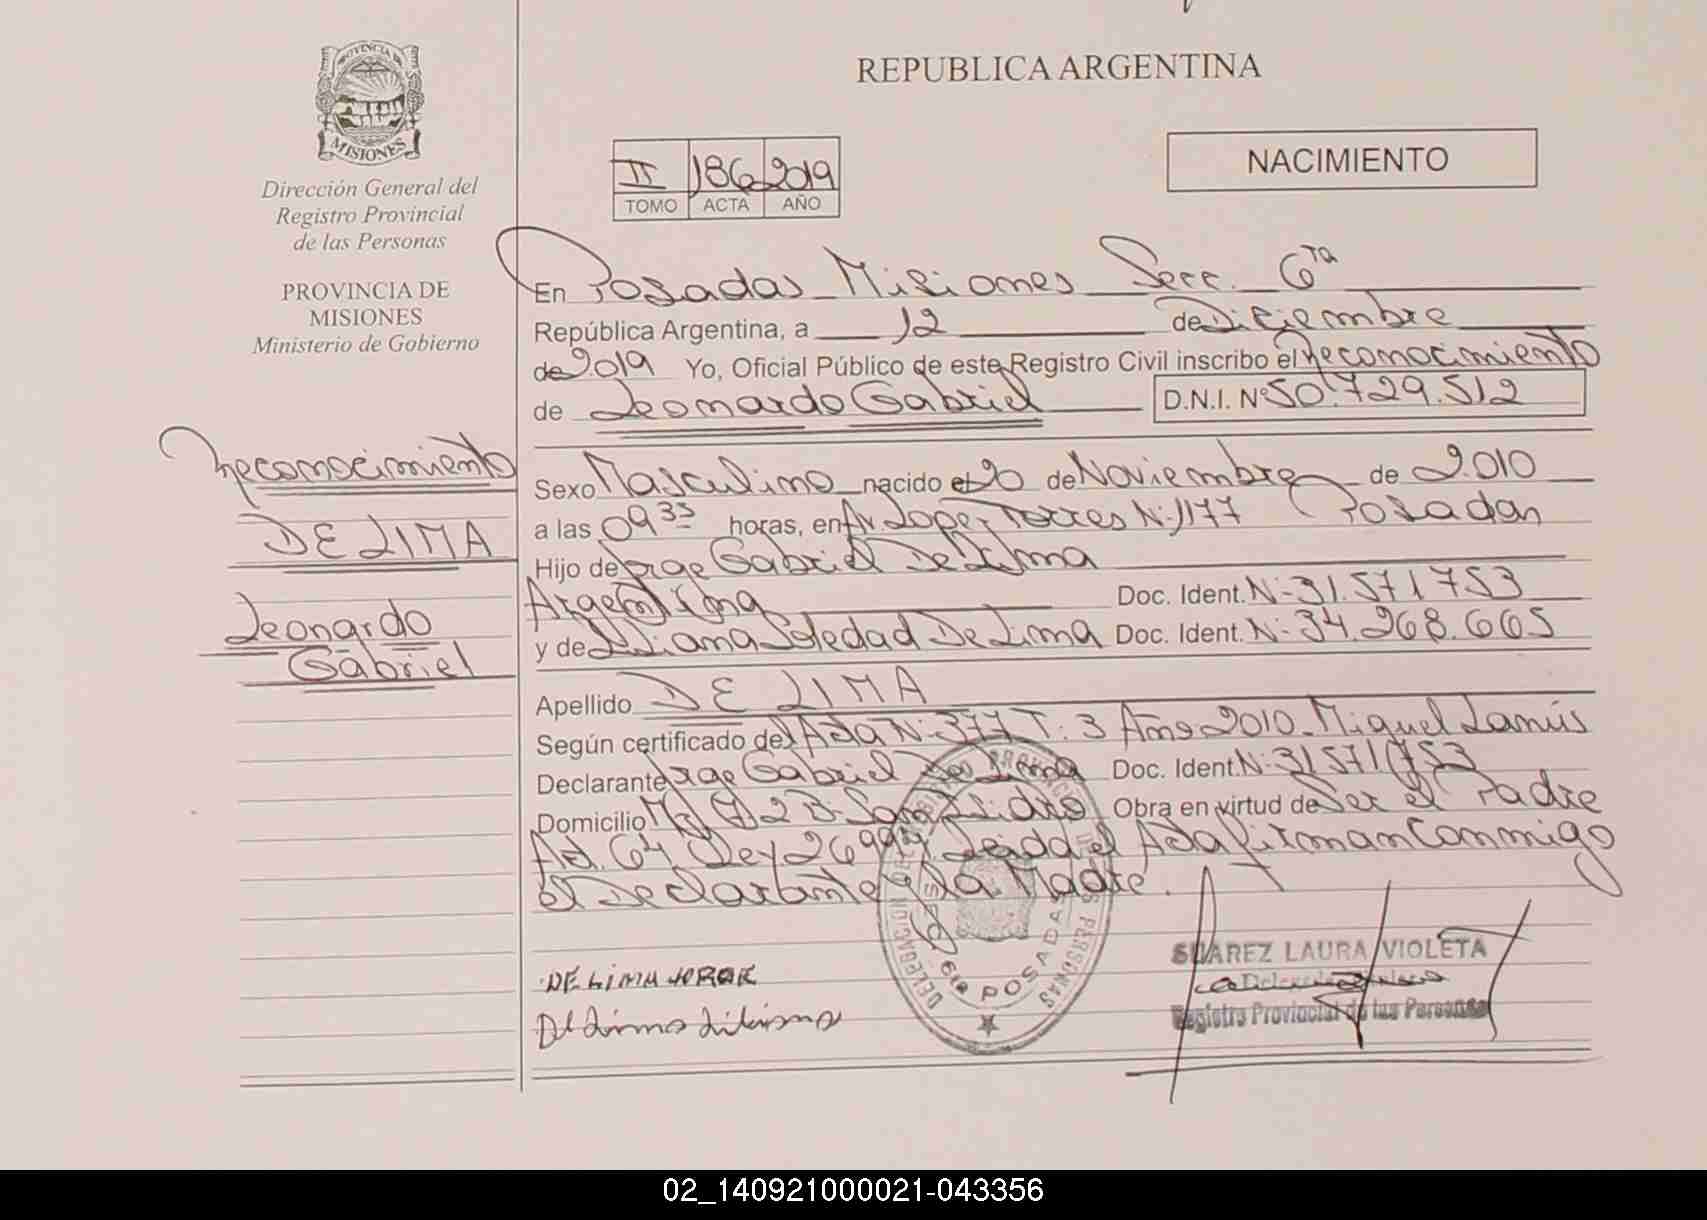 REPUBLICA ARGENTINA
PROVINCIA DE
MISIONES
Dirección General del
Registro Provincial
de las Personas
PROVINCIA DE
MISIONES
Ministerio de Gobierno
II 186 2019
TOMO ACTA AÑO
NACIMIENTO
En Posadas Misiones Secc. 6ta
República Argentina, a 12 de Diciembre
de 2019 Yo, Oficial Público de este Registro Civil inscribo el Reconocimiento
de Leonardo Gabriel D.N.I. Nº 50.729.512
Reconocimiento
DE LIMA
Leonardo
Gabriel
Sexo Masculino nacido el 20 de Noviembre de 2010
a las 09 33 horas, en Av. Lopez Torres N: 1177 Posadas
Hijo de Jorge Gabriel De Lima
Argentina Doc. Ident. N: 31.571753
y de Liliana Soledad De Lima Doc. Ident. N: 34.268.665
Apellido DE LIMA
Según certificado del Acta N: 377 T: 3 Año 2010. Miguel Lanús
Declarante Jorge Gabriel De Lima Doc. Ident. N: 31571753
Domicilio San Isidro Obra en virtud de Ser el Padre
Art. 64 Ley 26994 Leida el Acta firman Conmigo
el Declarante y la Madre.
DE LIMA JORGE
De Lima Liliana
POSADAS
SUAREZ LAURA VIOLETA
Registro Provincial de las Personas
02_140921000021-043356